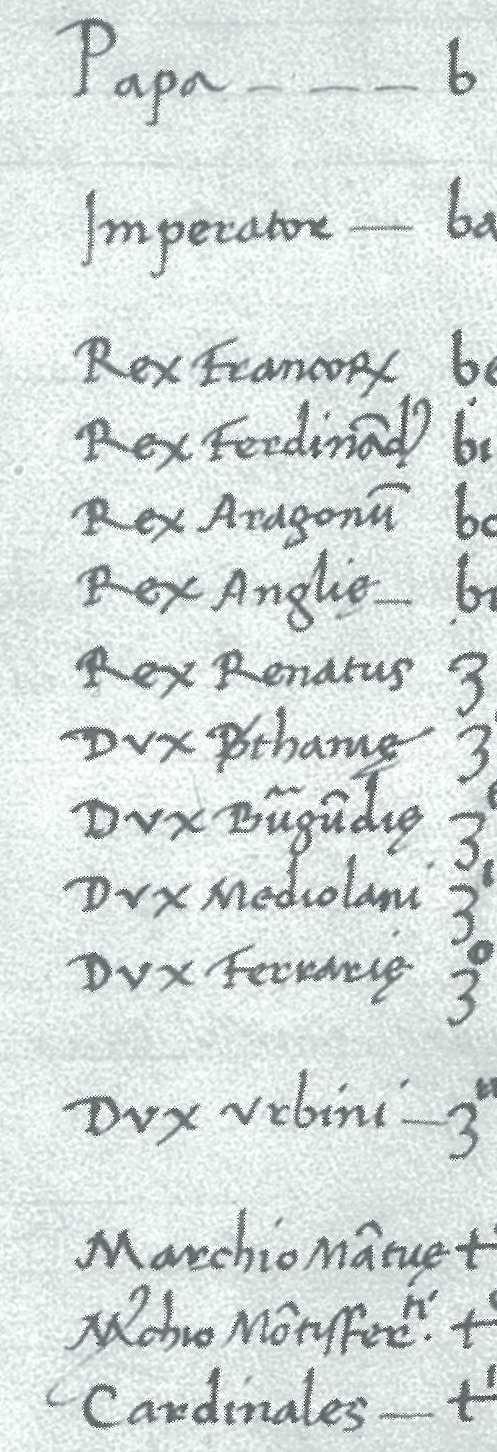 Papa — — — b
Imperator — ba
Rex Francoꝝ be
Rex Ferdinād9 bi
Rex Aragonū bo
Rex Anglię — bu
Rex Renatus 3
Dvx Bthanię 3
Dvx Būgūdię 3
Dvx Mediolani 3
Dvx Ferrarię 3o
Dvx Vrbini — 3u
Marchio Mātuę t
Mchio Mōtisferrti. t
Cardinales — t